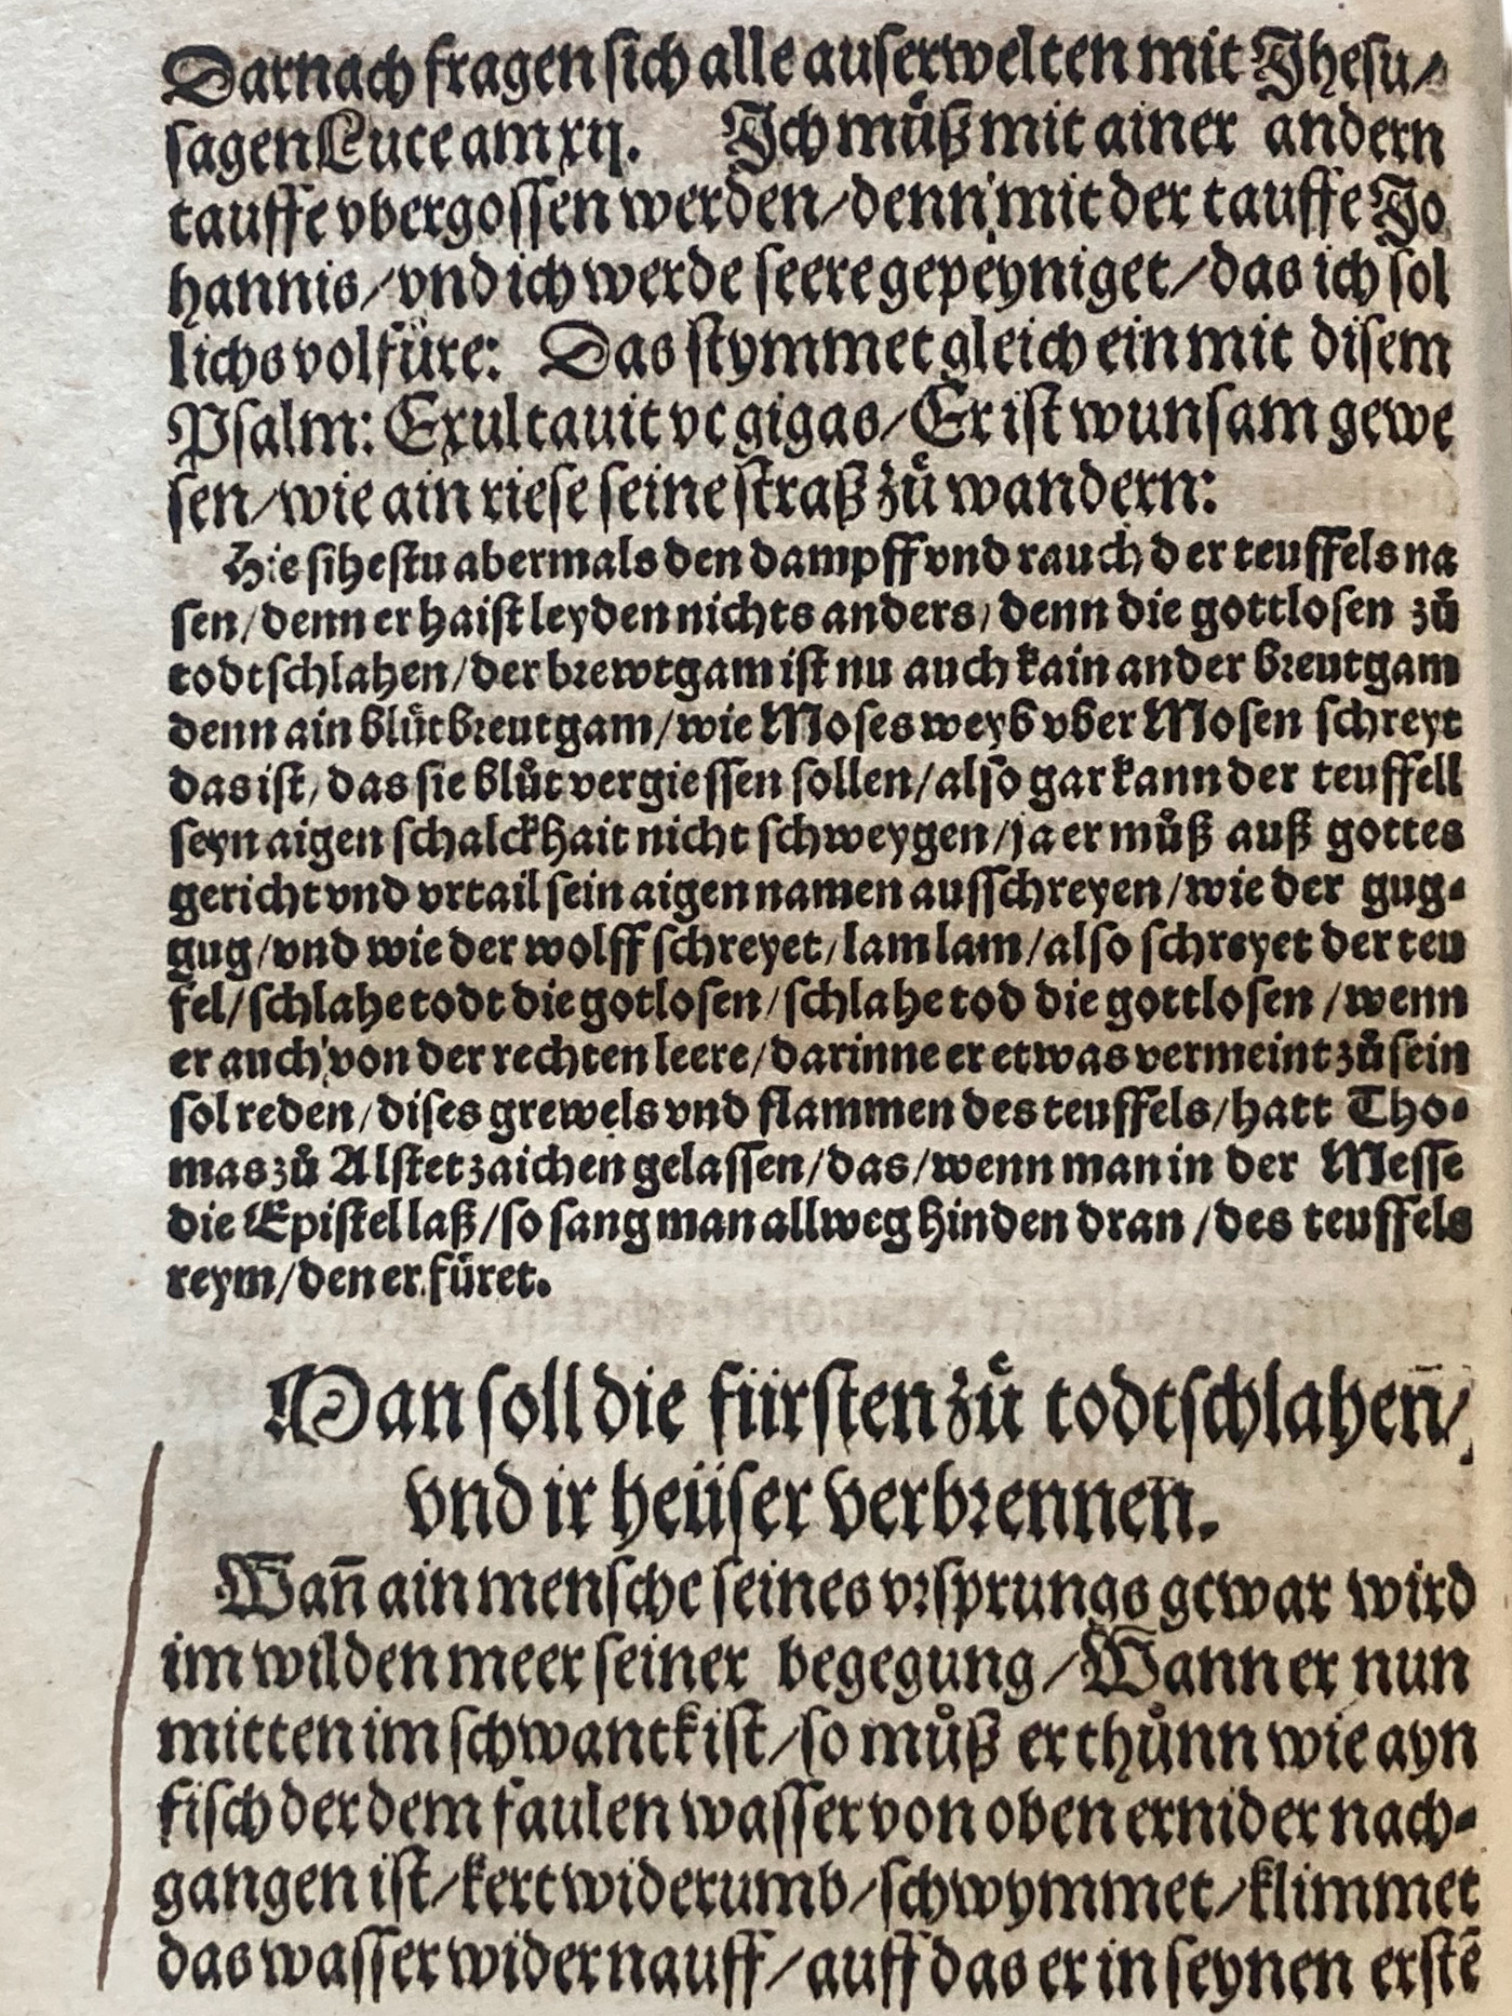 Darnach fragen sich alle auserwelten mit Jhesu/
sagen Luce am xij. Jch muͤß mit ainer andern
tauffe vbergossen werden/ denn mit der tauffe Jo
hannis/ vnd ich werde seere gepeyniget/ das ich sol
lichs volfüre: Das stymmet gleich ein mit disem
Psalm: Exultauit vt gigas/ Er ist wunsam gewe
sen/ wie ain riese seine straß zuͤ wandern:
Hie sihestu abermals den dampff vnd rauch der teuffels na
sen/ denn er haist leyden nichts anders/ denn die gottlosen zuͦ
todtschlahen/ der brewtgam ist nu auch kain ander breutgam
denn ain bluͤtbreutgam/ wie Moses weyb vber Mosen schreyt
das ist/ das sie bluͦt vergiessen sollen/ also gar kann der teuffell
seyn aigen schalckhait nicht schweygen/ ja er muͦß auß gottes
gericht vnd vrtail sein aigen namen ausschreyen/ wie der gug-
gug/ vnd wie der wolff schreyet/ lam lam/ also schreyet der teu
fel/ schlahe todt die gotlosen/ schlahe tod die gottlosen / wenn
er auch von der rechten leere/ darinne er etwas vermeint zuͦ sein
sol reden/ dises grewels vnd flammen des teuffels/ hatt Tho-
mas zuͦ Alstet zaichen gelassen/ das/ wenn man in der Messe
die Epistel laß/ so sang man allweg hinden dran / des teuffels
reym/ den er füret.
Man soll die fürsten zuͤ todtschlahen̄/
vnd ir heüser verbrennen̄.
Wan̄ ain mensche seines vrsprungs gewar wird
im wilden meer seiner begegung/ Wann er nun
mitten im schwantk ist/ so muͦß er thuͦnn wie ayn
fisch der dem faulen wasser von oben ernider nach-
gangen ist/ kert widerumb/ schwymmet/ klimmet
das wasser wider nauff/ auff das er in seynen erstē